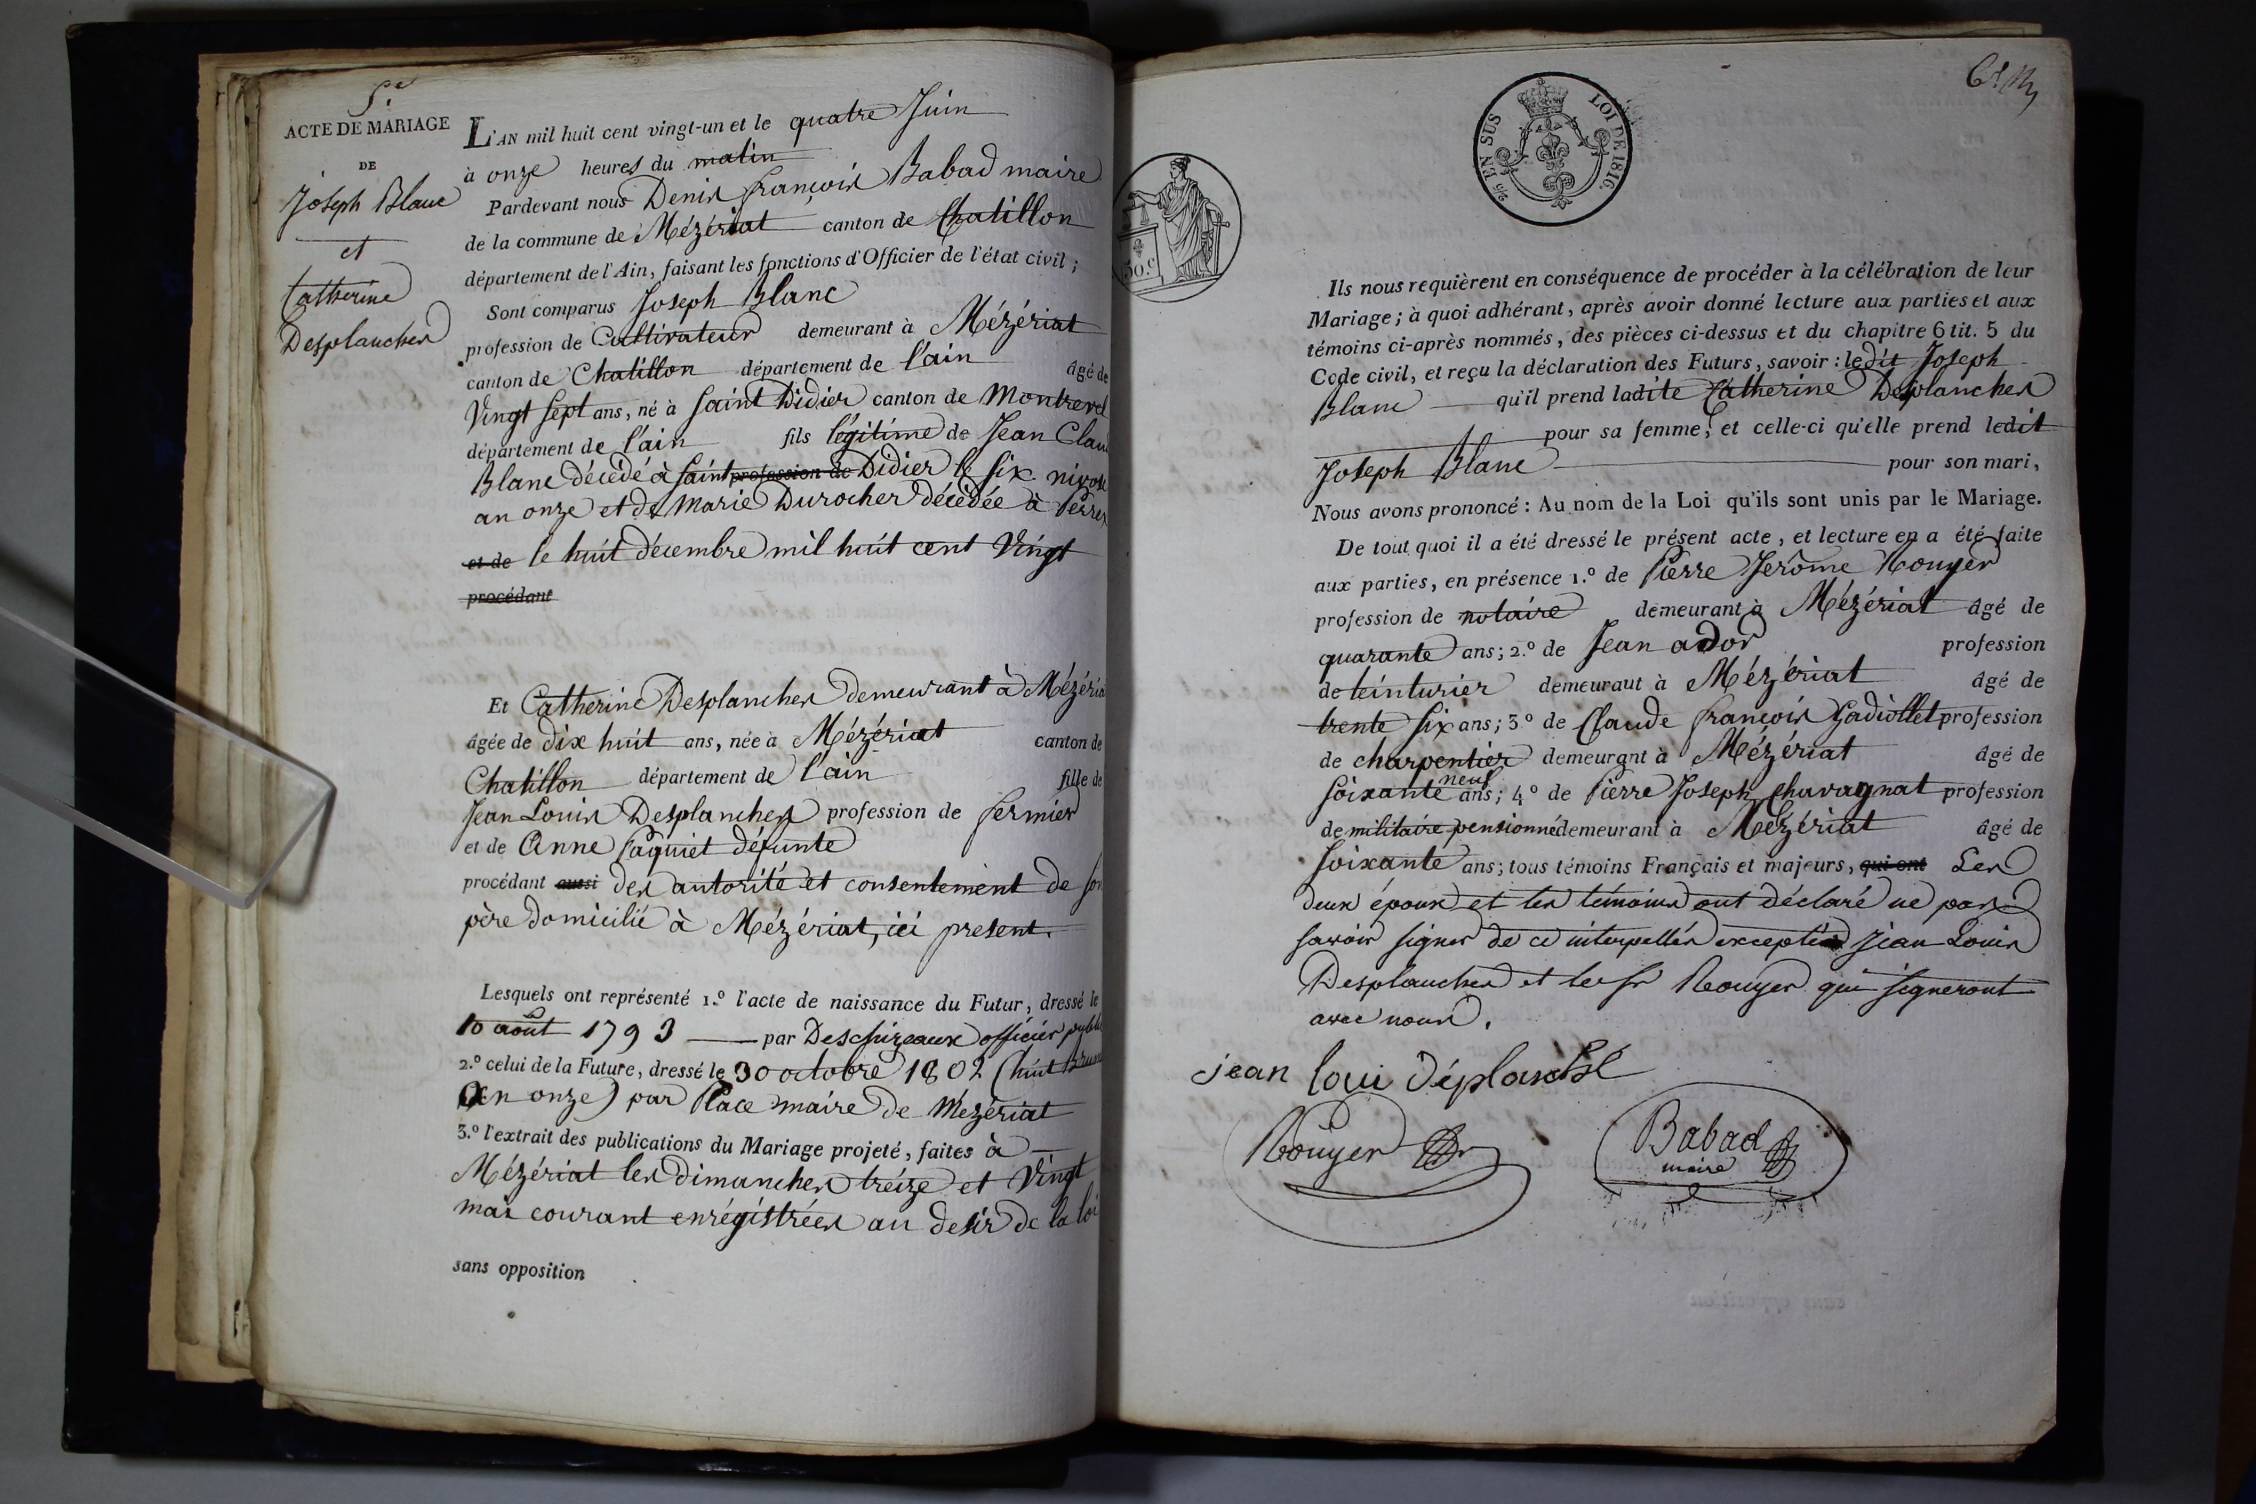 5e
ACTE DE MARIAGE
DE
Joseph Blanc
et
Catherine
Desplanches
L'AN mil huit cent vingt-un et le quatre Juin
à onze heures du matin
Pardevant nous Denis François Babad maire
de la commune de Mézériat canton de Chatillon
département de l'Ain, faisant les fonctions d'Officier de l'état civil ;
Sont comparus Joseph Blanc
profession de Cultivateur demeurant à Mézériat
canton de Chatillon département de l'ain âgé de
Vingt Sept ans, né à Saint Didier canton de Montrevel
département de l'ain fils légitime de Jean Clau
Blanc décédé à Saint profession de Didier le six nivose
an onze et de Marie Durocher décédée à Perrex
et de le huit décembre mil huit cent Vingt
procédant
Et Catherine Desplanches demeurant à Mézéria
âgée de dix huit ans, née à Mézériat canton de
Chatillon département de l'ain fille de
Jean Louis Desplanches profession de fermier
et de Anne Paquiet défunte
procédant aussi des autorité et consentement de son
père domicilié à Mézériat, ici présent.
Lesquels ont représenté 1.º l'acte de naissance du Futur, dressé le
10 août 1793 par Deschizeaux officier public
2.º celui de la Future, dressé le 30 octobre 1802 (huit Bruma
an onze) par Place maire de Mézériat
3.º l'extrait des publications du Mariage projeté, faites à
Mézériat les dimanches treize et Vingt
mai courant enrégistrées au desir de la loi
sans opposition
25 EN SUS
LOI DE 1816.
50.c
Ils nous requièrent en conséquence de procéder à la célébration de leur
Mariage ; à quoi adhérant, après avoir donné lecture aux parties et aux
témoins ci-après nommés, des pièces ci-dessus et du chapitre 6 tit. 5 du
Code civil, et reçu la déclaration des Futurs, savoir : ledit Joseph
Blanc qu'il prend ladite Catherine Desplanches
pour sa femme, et celle-ci qu'elle prend ledit
Joseph Blanc pour son mari,
Nous avons prononcé : Au nom de la Loi qu'ils sont unis par le Mariage.
De tout quoi il a été dressé le présent acte, et lecture en a été faite
aux parties, en présence 1.º de Pierre Jerôme Rouyer
profession de notaire demeurant à Mézériat âgé de
quarante ans ; 2.º de Jean ador profession
de teinturier demeurant à Mézériat âgé de
trente six ans ; 3.º de Claude françois Gadiollet profession
de charpentier demeurant à Mézériat âgé de
neuf
soixante ans ; 4º de Pierre Joseph Chavagnat profession
de militaire pensionné demeurant à Mézériat âgé de
soixante ans ; tous témoins Français et majeurs, qui ont Les
deux époux et les témoins ont déclaré ne pas
savoir signer de ce interpellés exceptés Jean Louis
Desplanches et le sr Rouyer qui signeront
avec nous.
jean loui déplanche
Rouyer
Babad
maire